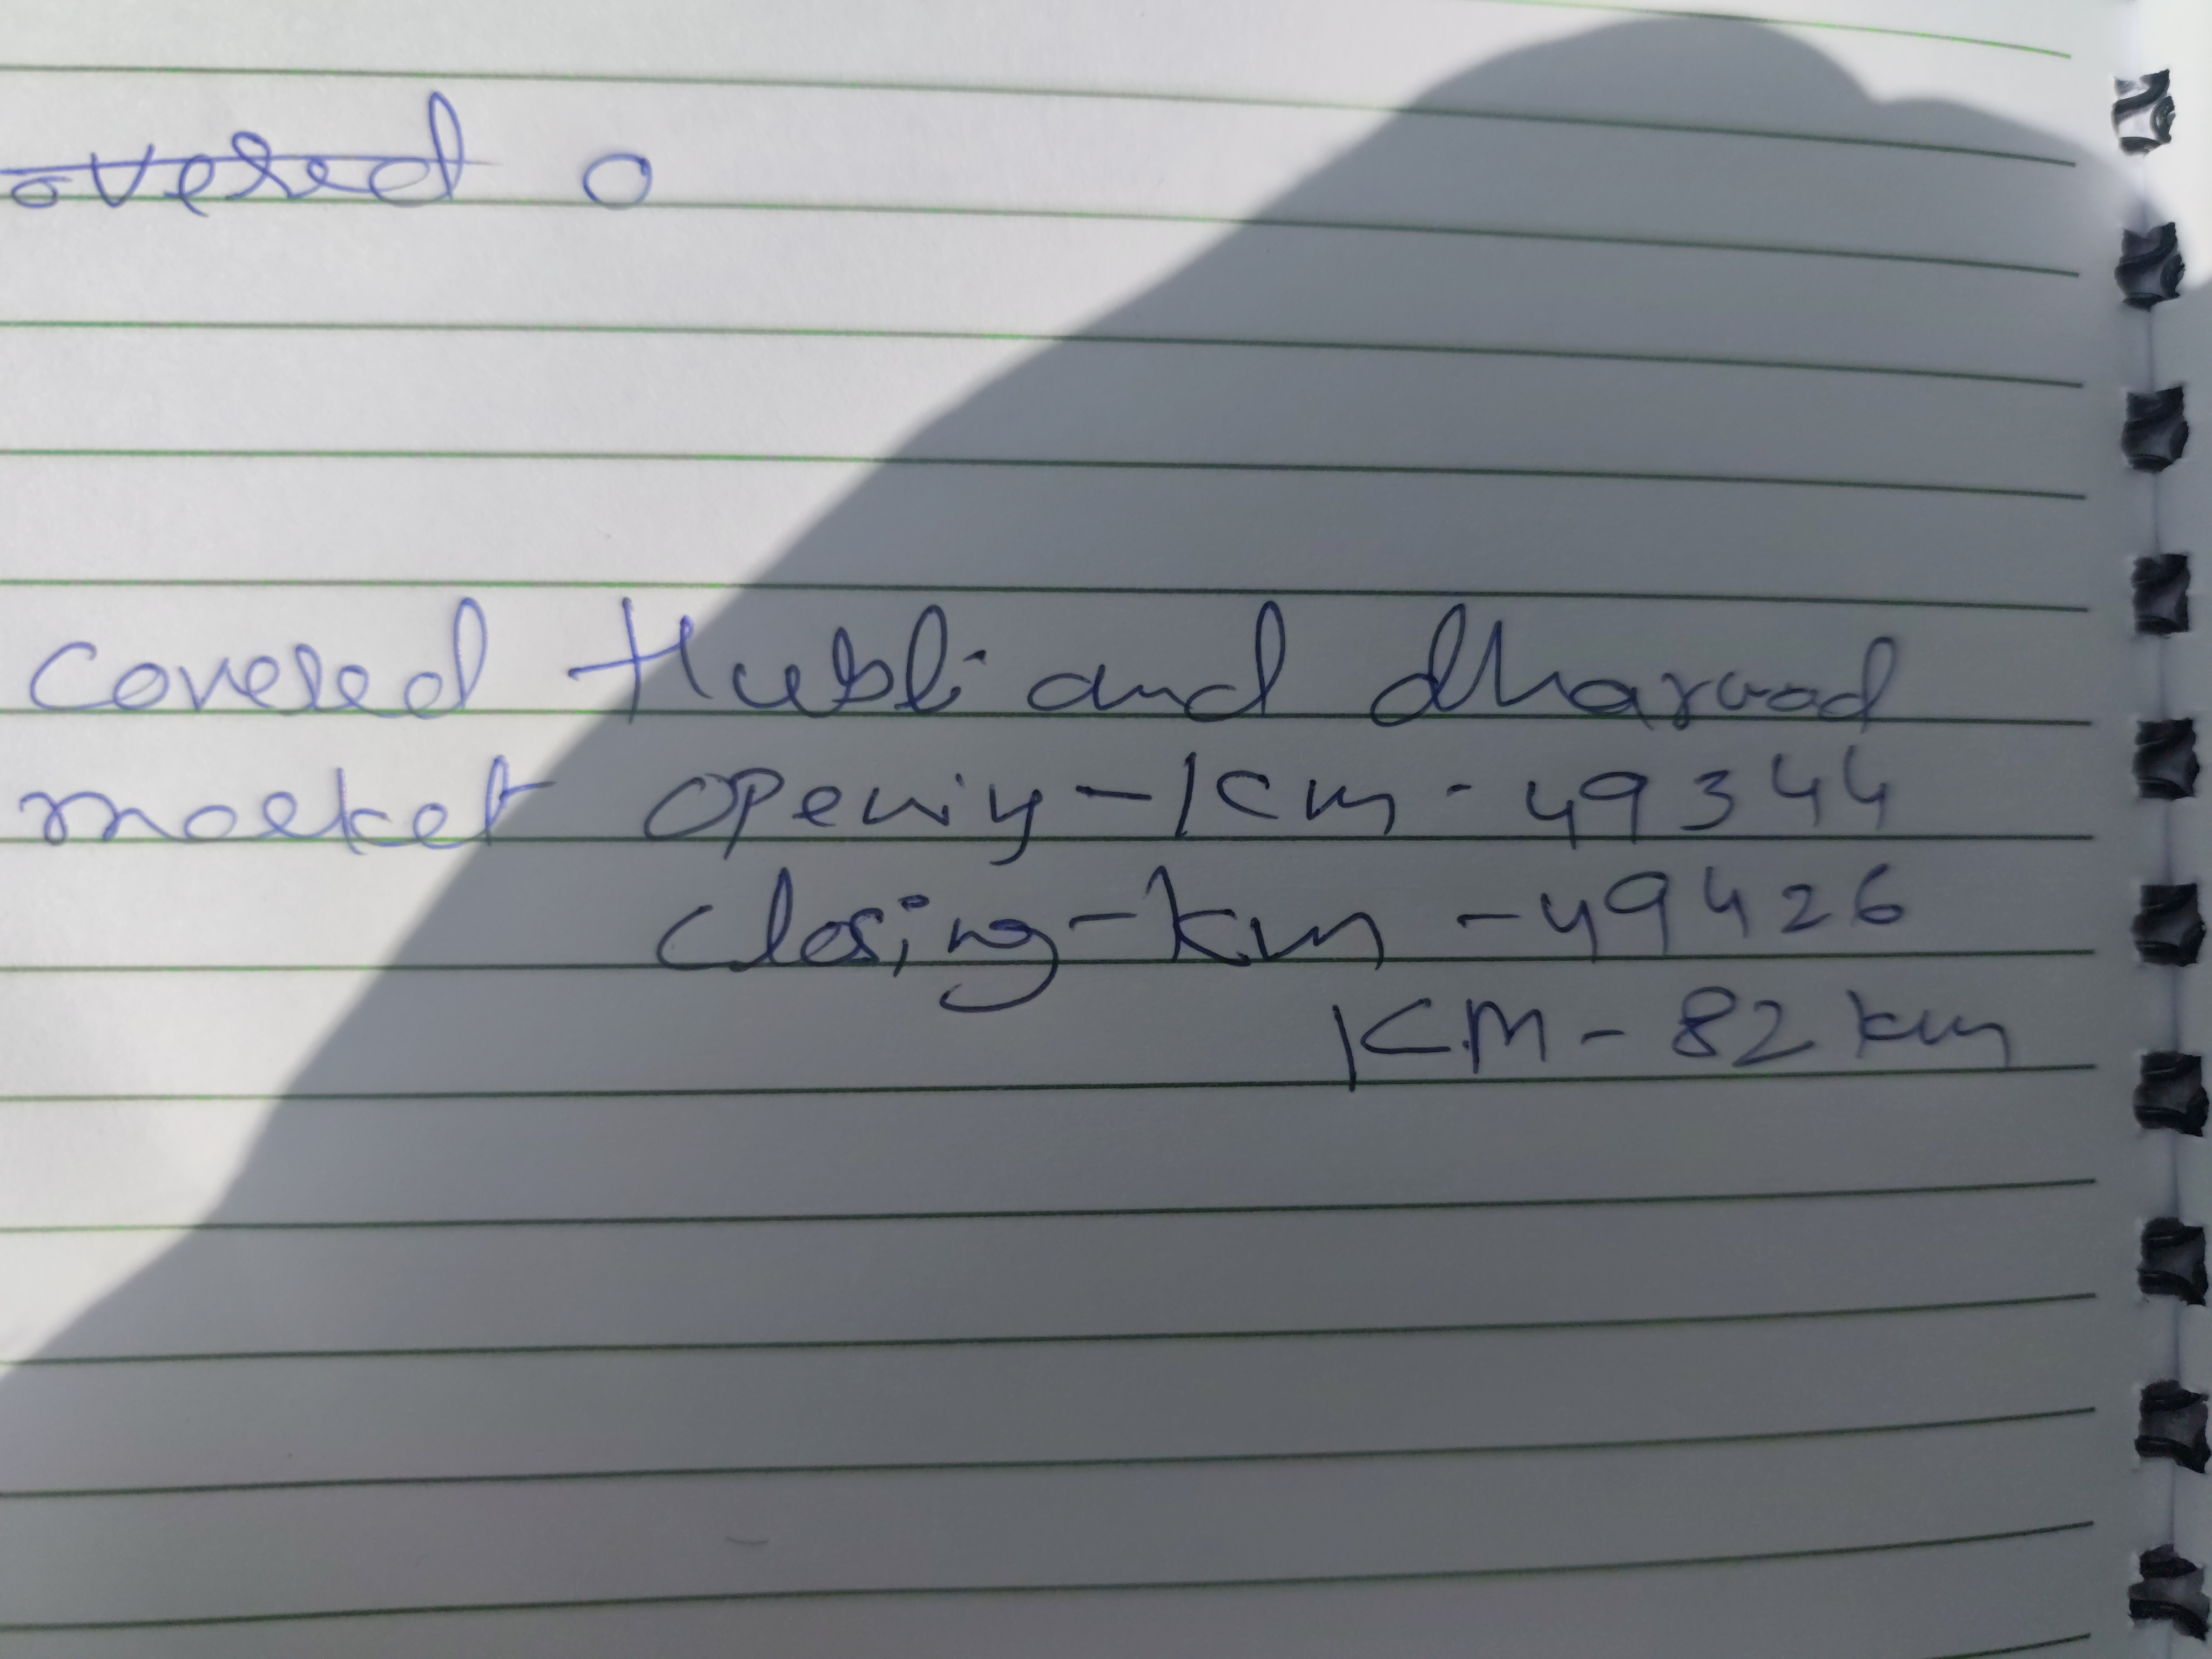 overed o
covered Hubli and dharwad
market opening-Km - 49344
closing-km - 49426
KM - 82 km